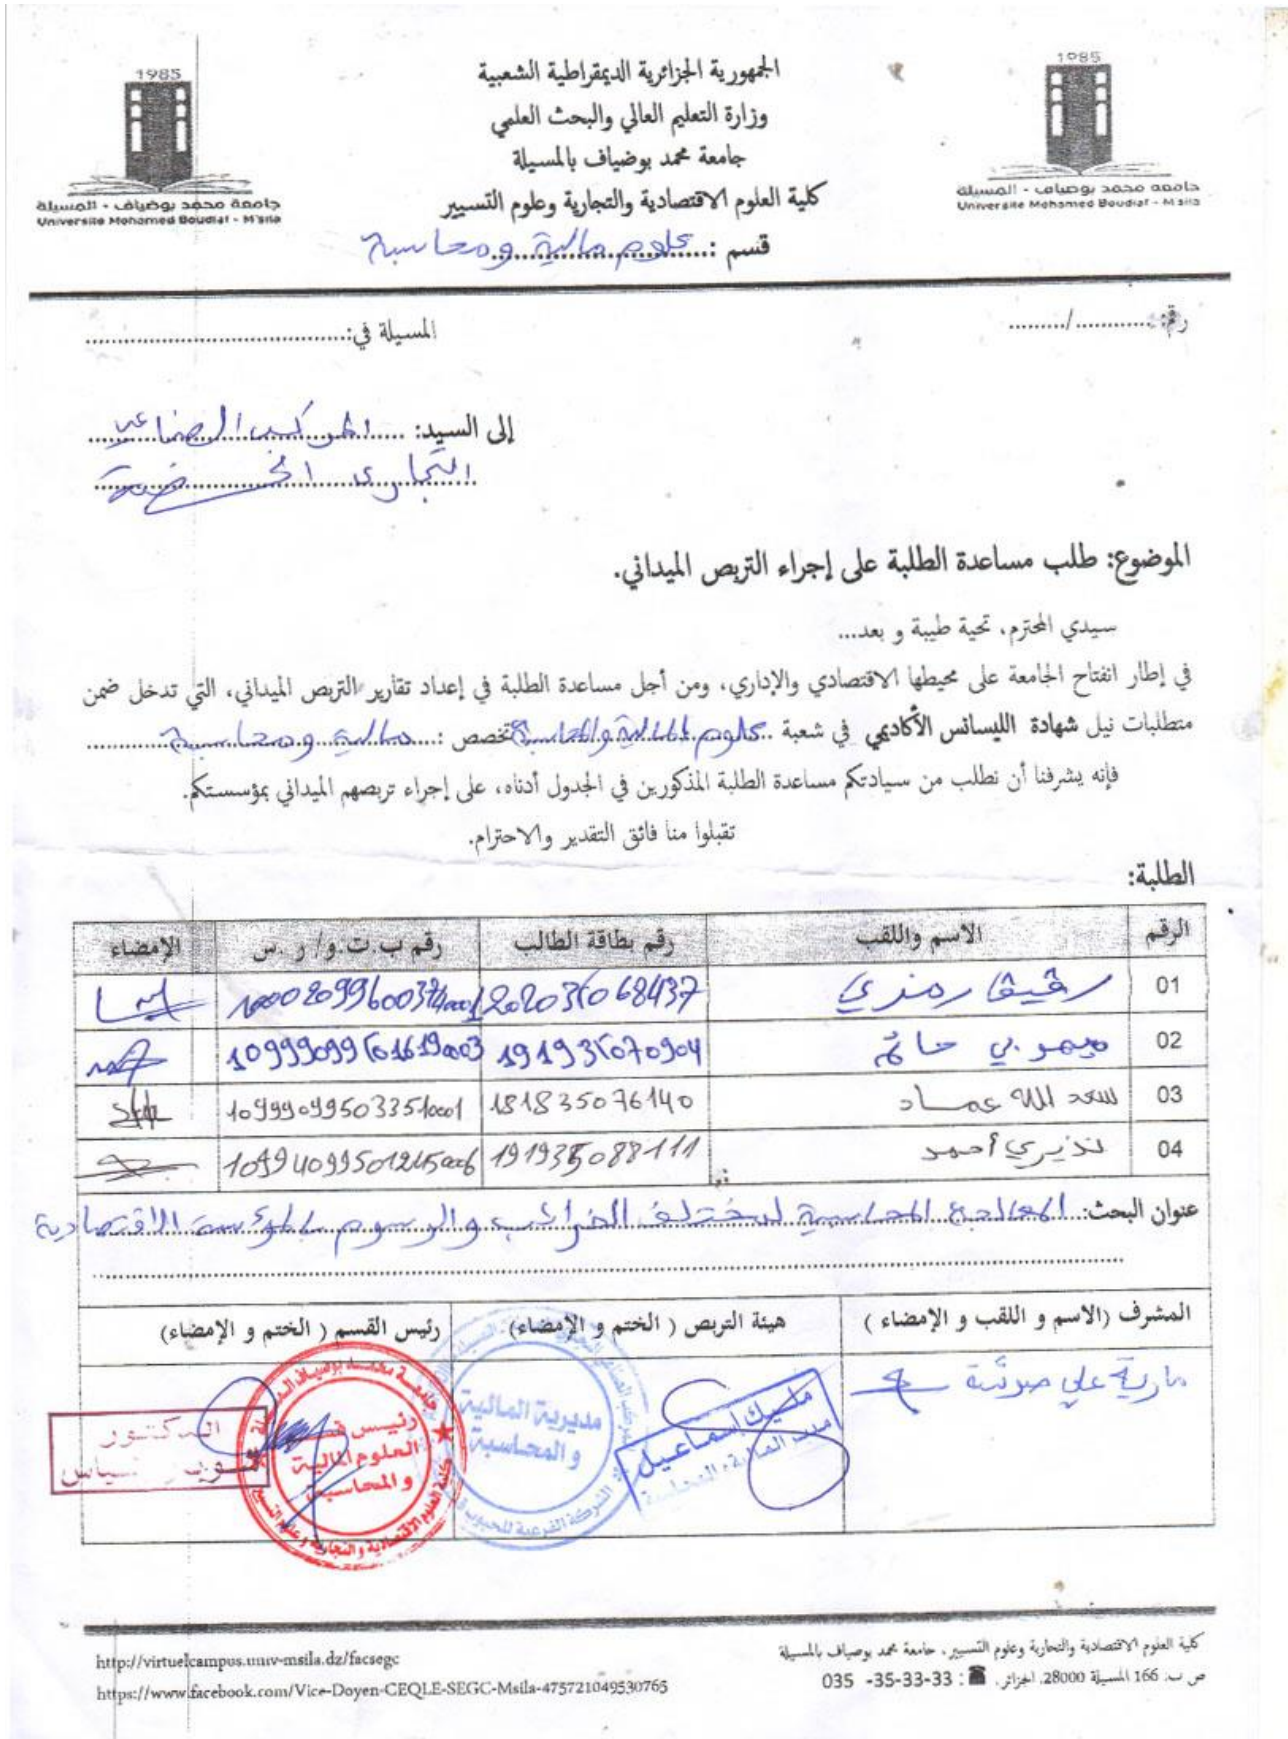 1985
جامعة محمد بوضياف - المسيلة
Université Mohamed Boudiaf - M'sila
الجمهورية الجزائرية الديمقراطية الشعبية
وزارة التعليم العالي والبحث العلمي
جامعة محمد بوضياف بالمسيلة
كلية العلوم الاقتصادية والتجارية وعلوم التسيير
قسم : علوم مالية ومحاسبة
1985
جامعة محمد بوضياف - المسيلة
Université Mohamed Boudiaf - M'sila
رقم: ............/.........
المسيلة في:......................................
إلى السيد: المركب الصناعي
التجاري الحضنة
الموضوع: طلب مساعدة الطلبة على إجراء التربص الميداني.
سيدي المحترم، تحية طيبة و بعد...
في إطار انفتاح الجامعة على محيطها الاقتصادي والإداري، ومن أجل مساعدة الطلبة في إعداد تقارير التربص الميداني، التي تدخل ضمن
متطلبات نيل شهادة الليسانس الأكاديمي في شعبة علوم المالية والمحاسبة تخصص : مالية ومحاسبة
فإنه يشرفنا أن نطلب من سيادتكم مساعدة الطلبة المذكورين في الجدول أدناه، على إجراء تربصهم الميداني بمؤسستكم.
تقبلوا منا فائق التقدير والاحترام.
الطلبة:
الرقم الاسم واللقب رقم بطاقة الطالب رقم ب.ت.و/ ر.س الإمضاء
01 رمزي 202035068437
02 ميهوبي حاتم 191935070904
03 سعد الله عماد 181835076140 109990995033510001
04 نذيري أحمد 191935088111
عنوان البحث: المعالجة المحاسبية لمختلف الضرائب والرسوم بالمؤسسة الاقتصادية
المشرف (الاسم و اللقب و الإمضاء ) هيئة التربص ( الختم و الإمضاء) رئيس القسم ( الختم و الإمضاء)
مارية علي
مديرية المالية
والمحاسبة
اسماعيل
مدير المالية والمحاسبة
رئيس قسم
العلوم المالية
والمحاسبة
الدكتور
كلية العلوم الاقتصادية والتجارية وعلوم التسيير، جامعة محمد بوضياف بالمسيلة
ص ب: 166 المسيلة 28000. الجزائر. ☎ : 33-33-35- 035
http://virtuelcampus.univ-msila.dz/facsegc
https://www.facebook.com/Vice-Doyen-CEQLE-SEGC-Msila-475721049530765